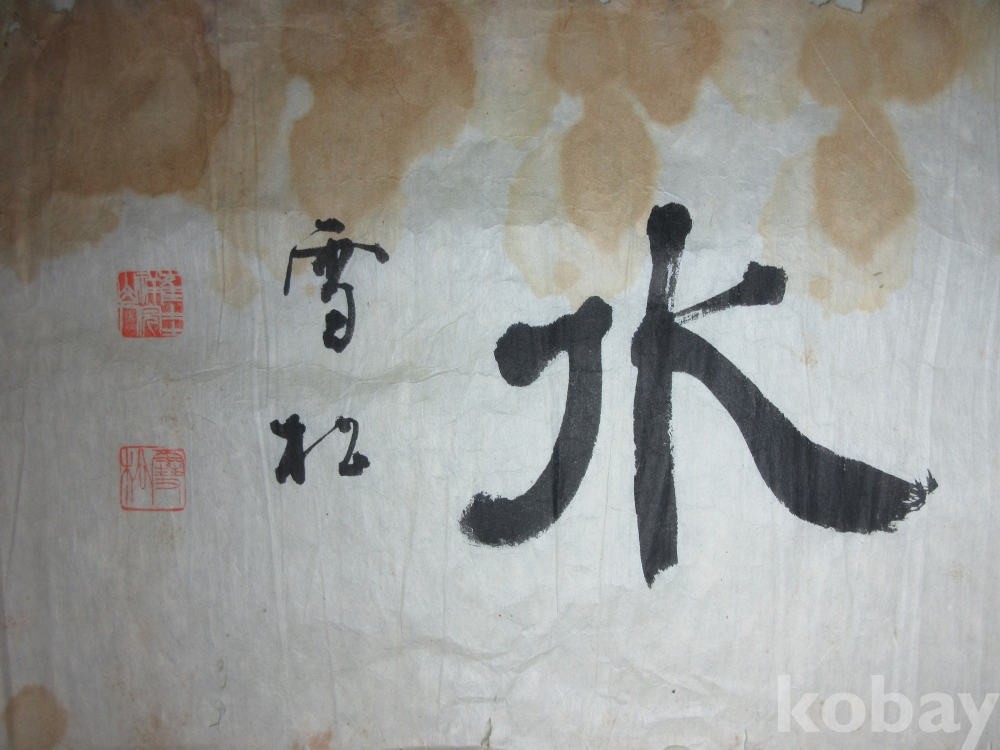 水
雪松
雪松
kobay